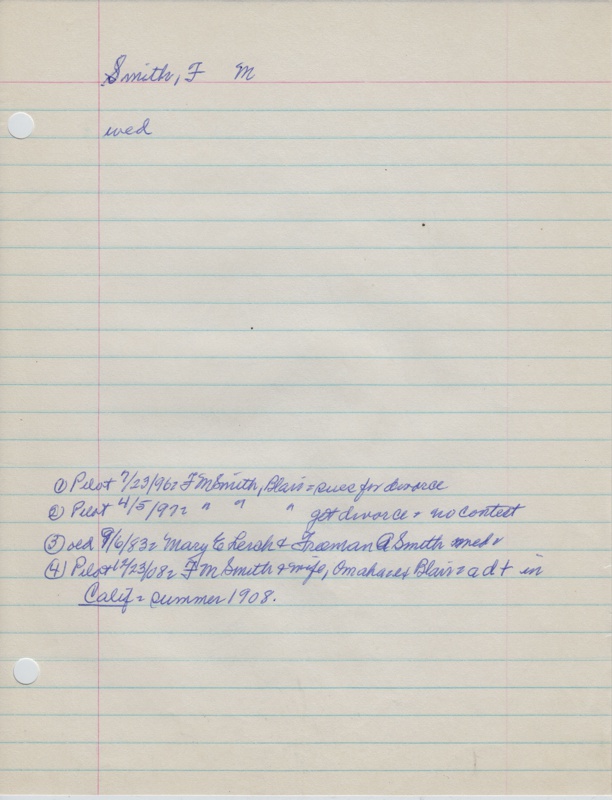 Smith, F M
wed
① Pilot 7/23/96= F M Smith, Blair = sues for divorce
② Pilot 4/5/97= " " " get divorce = no contest
③ wed 9/6/83= Mary E & Freeman A Smith
④ Pilot 12/23/08= F M Smith & wife, Omaha ex Blair = a d t in
Calif = summer 1908.